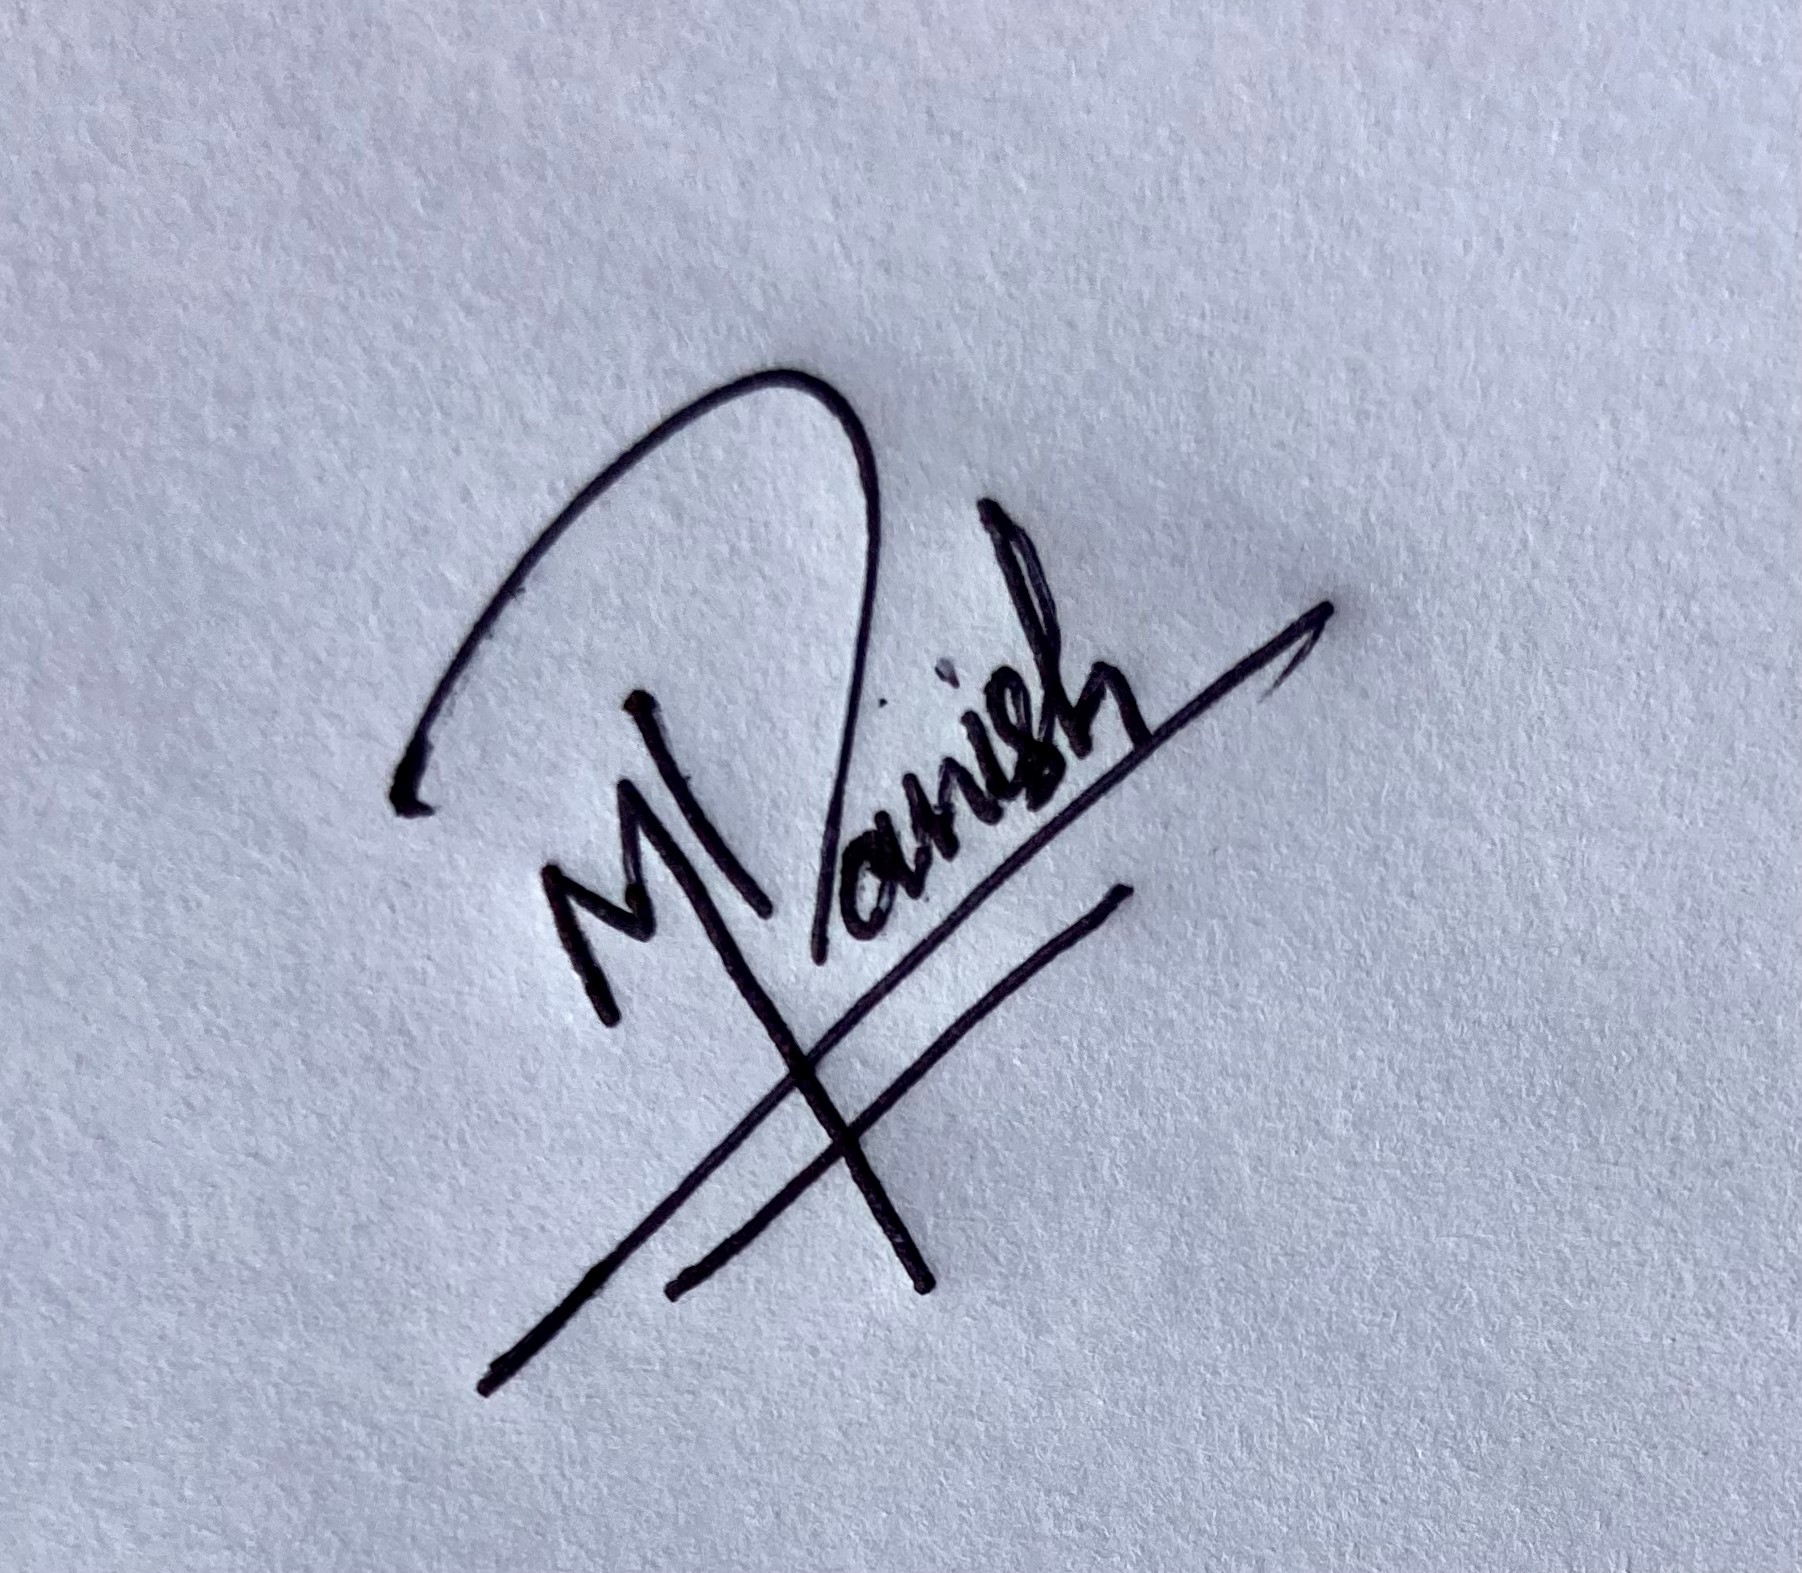 M Danish